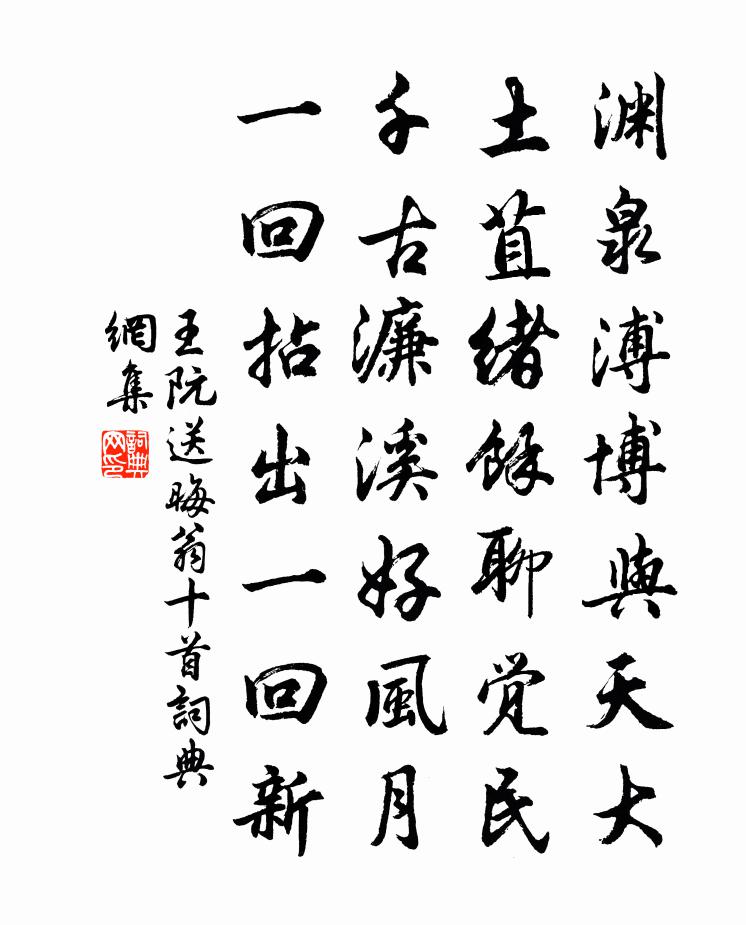 渊泉溥博與天大
土苴緒餘聊覚民
千古濂溪好風月
一回拈出一回新
王阮送晦翁十首詞典
網集
詞典
网印